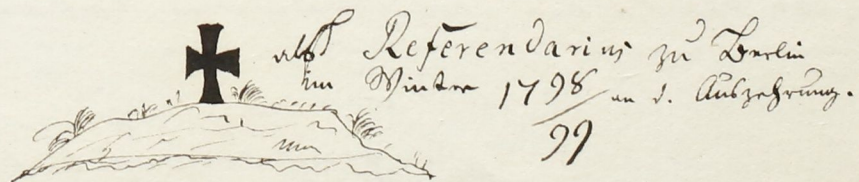 als Referendarius zu Berlin
im Winter 1798/99 an d. Auszehrung.